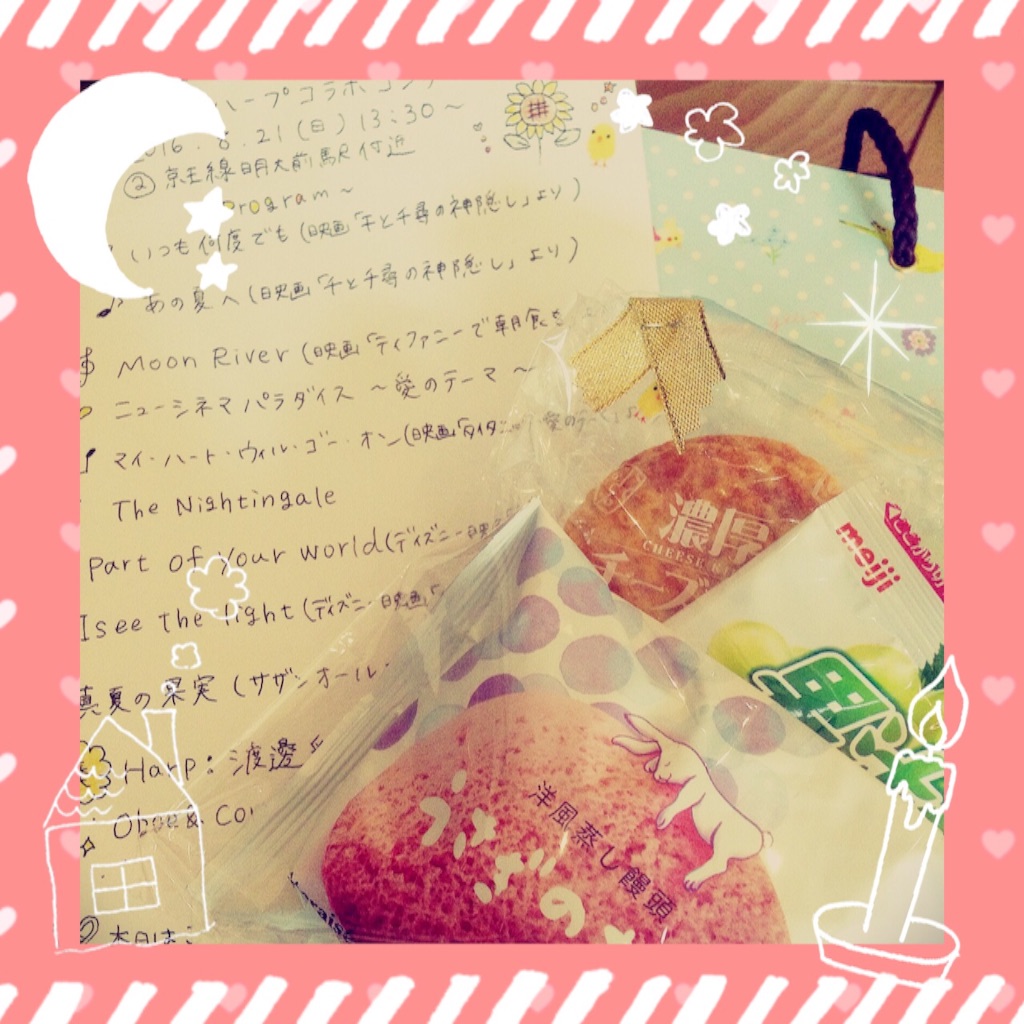 ハープコラボコン
2016.8.21(日)13:30~
② 京王線明大前駅付近
program~
いつも何度でも(映画「千と千尋の神隠し」より)
あの夏へ(映画「千と千尋の神隠し」より)
Moon River(映画「ティファニーで朝食を
ニューシネマパラダイス ~愛のテーマ~
マイ・ハート・ウィル・ゴー・オン(映画「タイタニ 愛のテーマ」
The Nightingale
Part of Your world(ディズニー映画
I see the light(ディズニー映画「
真夏の果実(サザンオール
Harp:渡邊
Oboe & Co
本日は
濃厚
CHEESE
チーズ
meiji
洋風蒸し饅頭
うさぎの